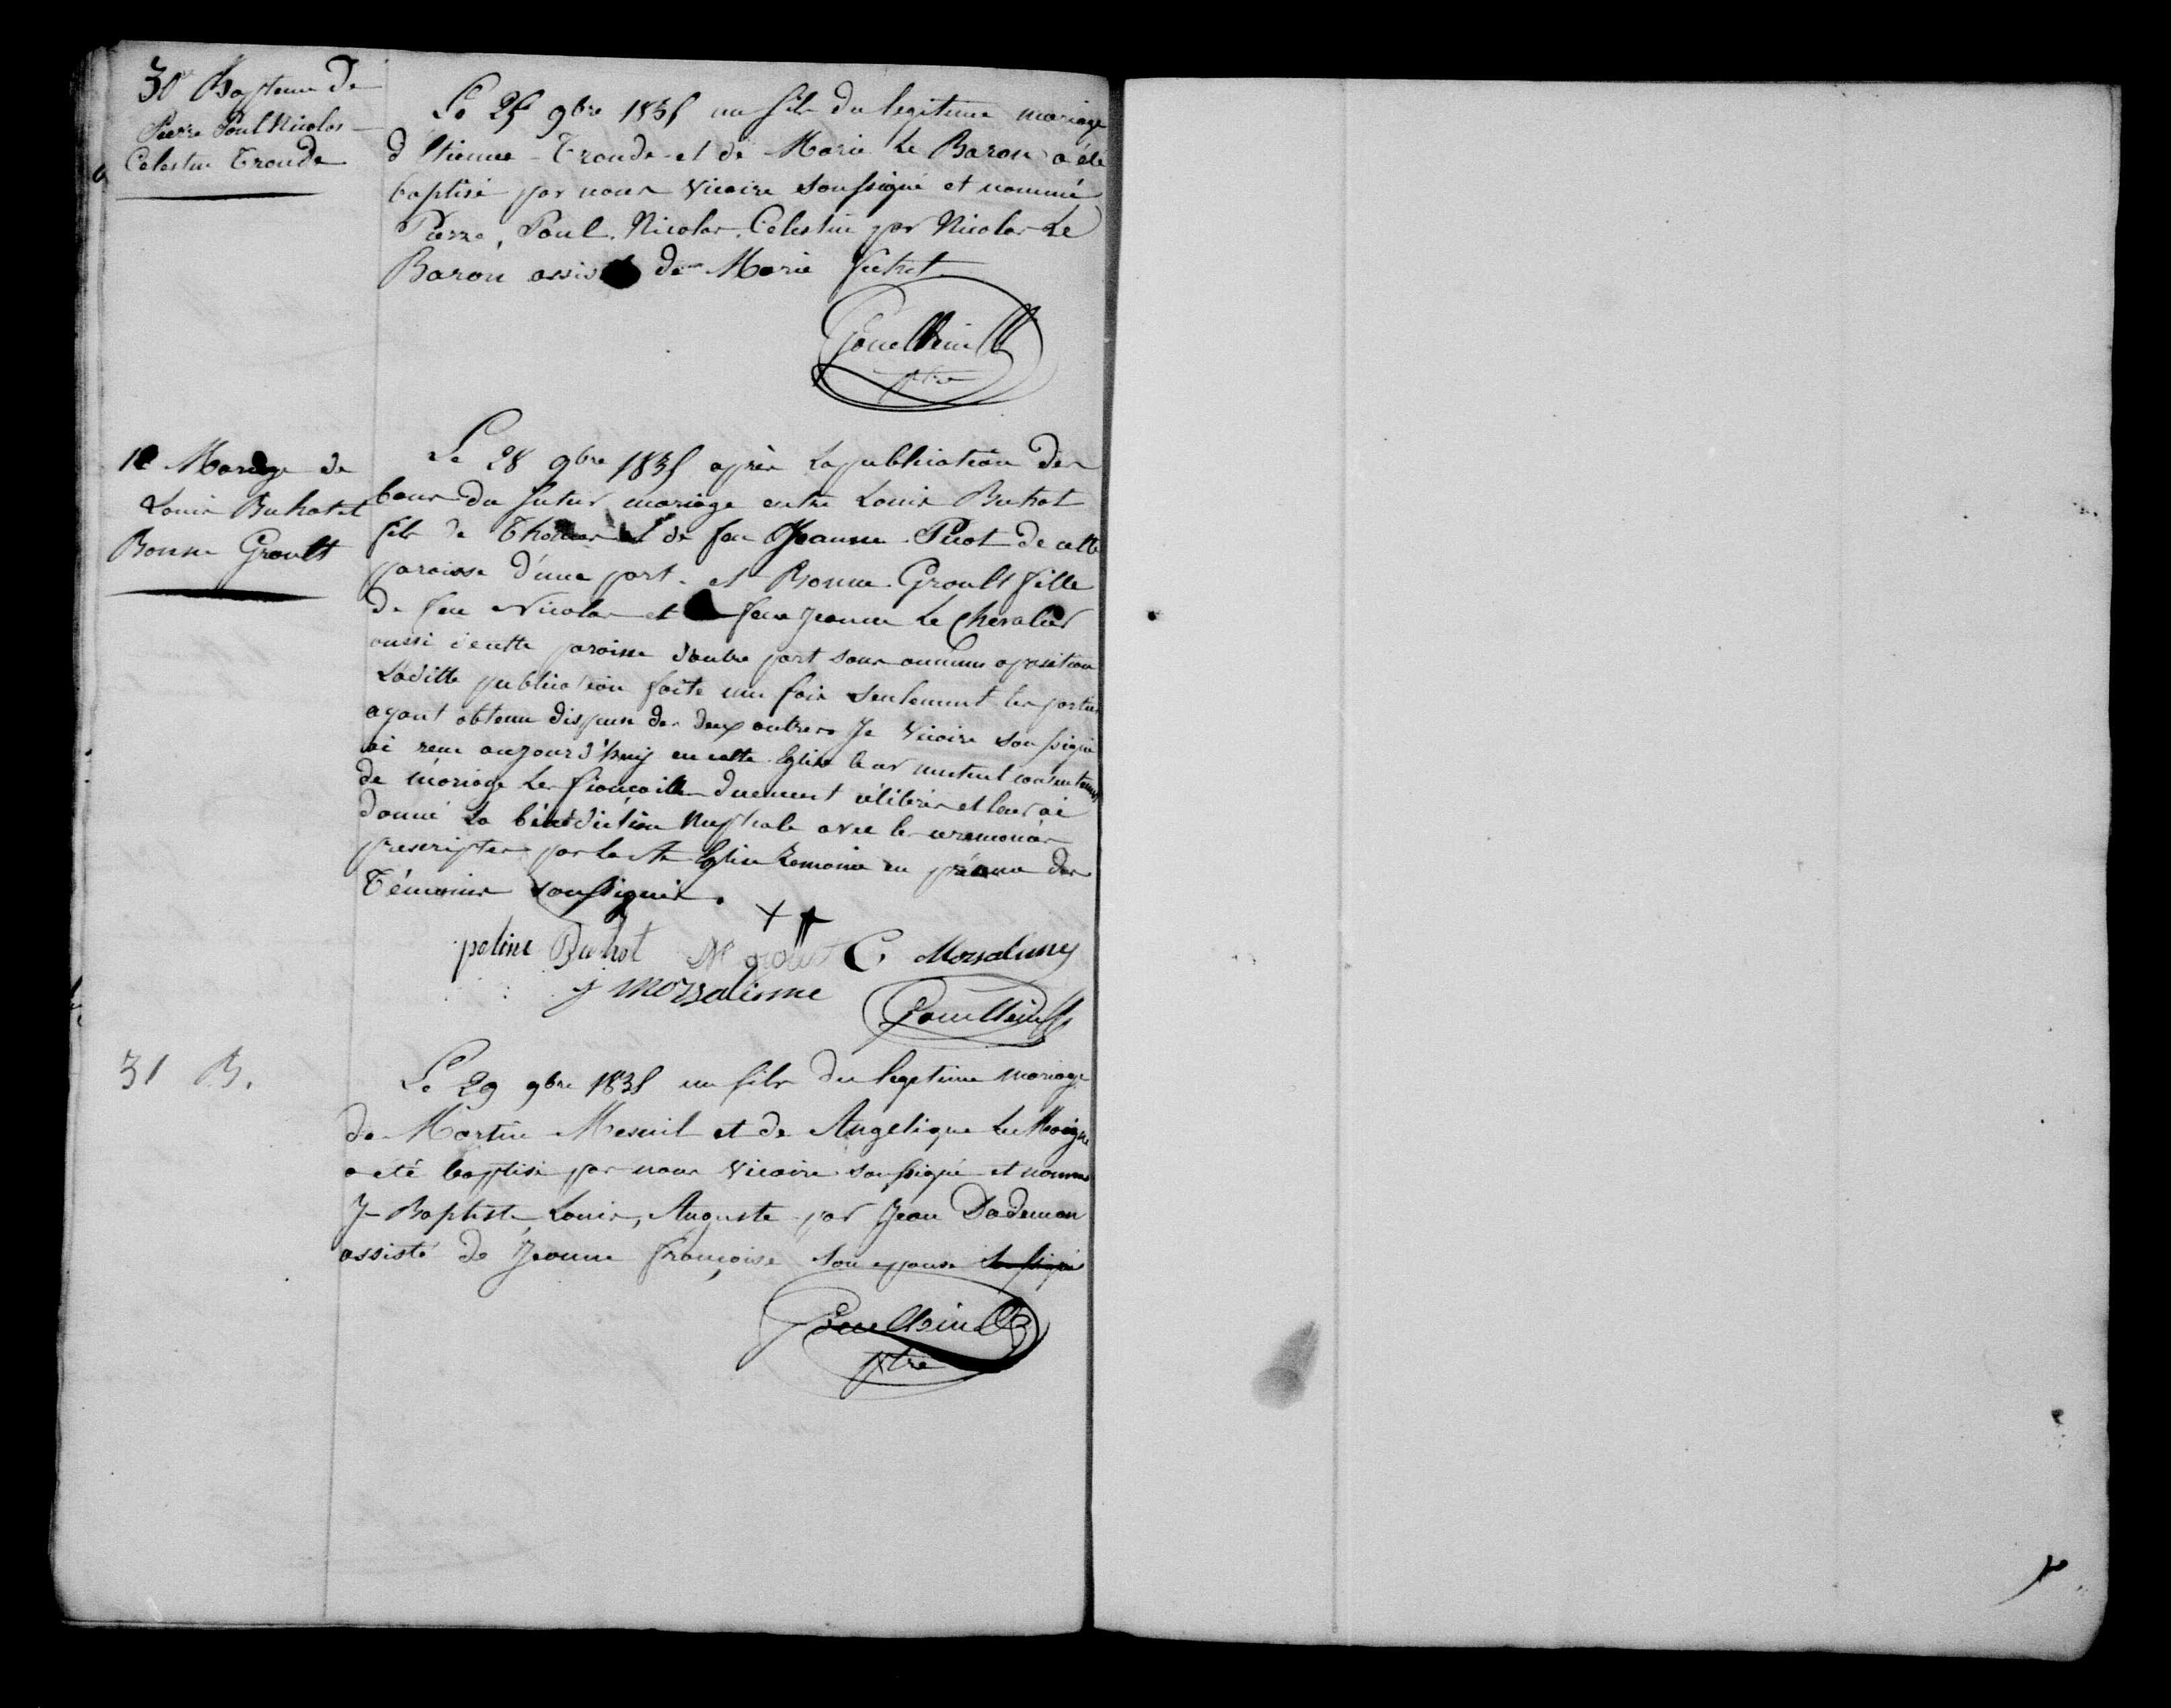 30 Bapteme de
Pierre Paul Nicolas
Celestin Troude
Le 25 9bre 1835 un fils du legitime mariage
d'Etienne Troude et de Marie Le Baron a été
baptisé par nous Vicaire soussigné et nommé
Pierre, Paul, Nicolas, Celestin par Nicolas Le
Baron assisté de Marie
ptre
Mariage de
Louis Buhot et
Bonne Groult
Le 28 9bre 1835 après la publication des
bans du futur mariage entre Louis Buhot
fils de Thomas et de feu Jeanne Picot de cette
paroisse d'une part. et Bonne Groult fille
de feu Nicolas et feue Jeanne Le Chevalier
aussi de cette paroisse d'autre part sans aucune oposition
Laditte publication faite une fois seulement les parties
ayant obtenu dispense des deux autres Je Vicaire soussigné
ai reçu aujourd'huy en cette Eglise leur mutuel consentement
de mariage Les fiançailles duement célébrées et leur ai
donné la bénédiction Nuptiale avec les ceremonies
prescriptes par la Ste Eglise Romaine en présence des
Témoins soussignés.
poline Buhot N groult C Morsaline
j morsalinne
31 B.
Le 29 9bre 1835 un fils du legitime mariage
de Martin Mesnil et de Angelique Le Moigne
a été baptisé par nous Vicaire soussigné et nommé
J-Baptiste, Louis, Auguste par Jean Dademan
assisté de Jeanne françoise son epouse soussigné
ptre